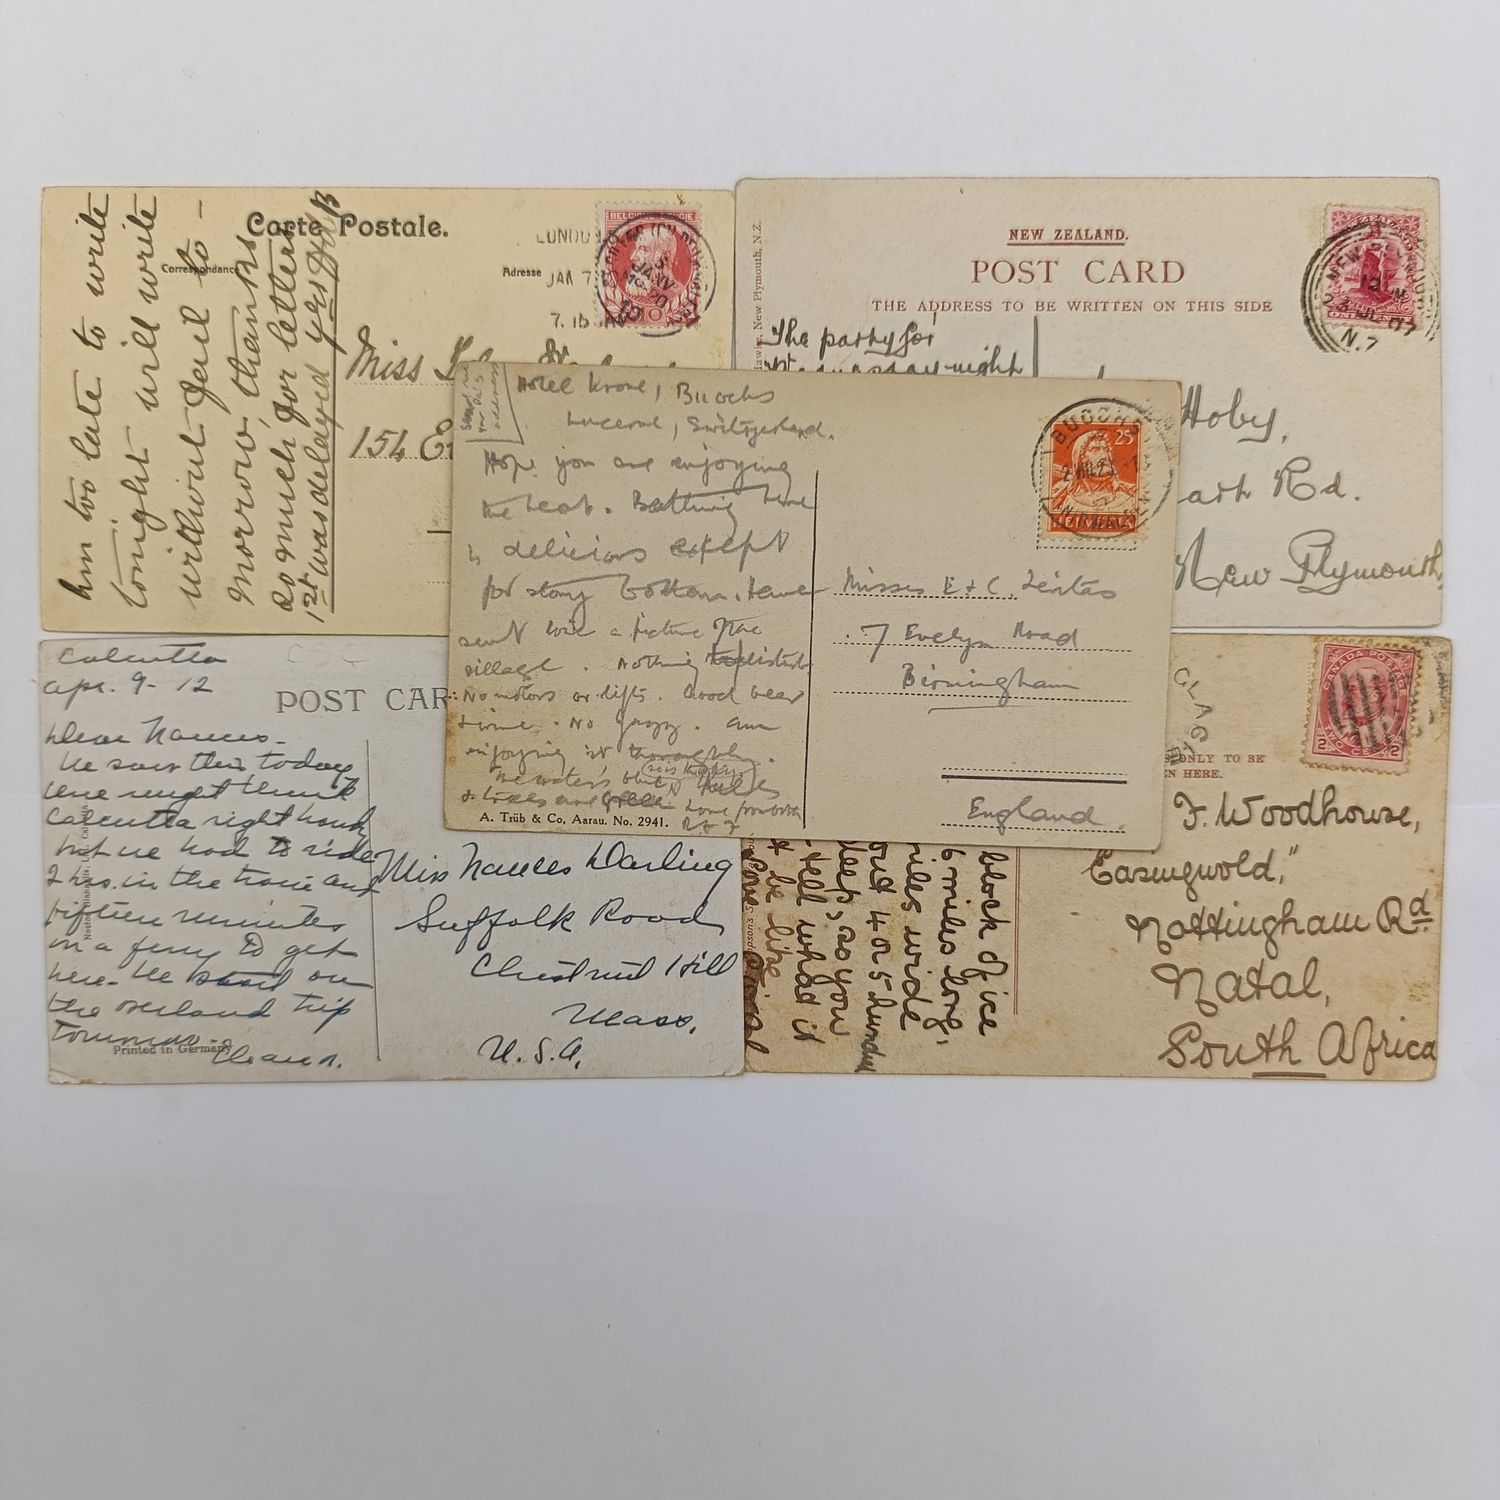 Carte Postale.
Correspondance
Adresse
BELGIQUE
10
LONDO
JAN 7
7. 15
JANV
Am too late to write
tonight will write
without fail to-
morrow, thanks
so much for letters
1st was delayed yes
Miss
154
NEW ZEALAND.
POST CARD
THE ADDRESS TO BE WRITTEN ON THIS SIDE
New Plymouth, N.Z.
ZEALAND
N.Z
07
The party for
Wednesday night
Hoby,
Rd.
New Plymouth
Hotel Krone, Buochs
Lucerne, Switzerland.
Hope you are enjoying
the heat. Bathing here
is delicious except
for stony bottom. Have
sent love a picture of the
village. Nothing to disturb
No motors or lifts. Good beer
wine. No jazz. am
enjoying it thoroughly.
The water's blue
& trees are
Love from both
A. Trüb & Co, Aarau. No. 2941.
BUOCHS
25
HELVETIA
Misses E & C. Levitas
7 Evelyn Road
Birmingham
England.
Calcutta
Apr. 9 - 12
POST CAR
Dear Nances -
We saw this today
One might think
Calcutta right handy
but we had to ride
2 hrs. in the train and
fifteen minutes
in a ferry to get
here. We start on
the overland trip
tomorrow - Eleanor.
Printed in Germany
Miss Nances Darling
Suffolk Road
Chestnut Hill
Mass.
U.S.A.
CANADA POSTAGE
2 CENTS 2
ONLY TO BE
N HERE.
block of ice
6 miles long,
miles wide
and 4 or 5 hundred
deep, so you
tell what it
t be like
F. Woodhouse,
"Easingwold,"
Nottingham Rd
Natal,
South Africa